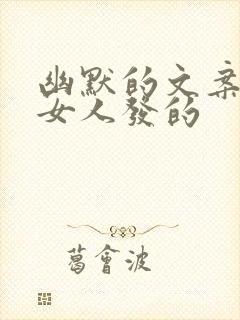 幽默的文案
女人發的
葛會波